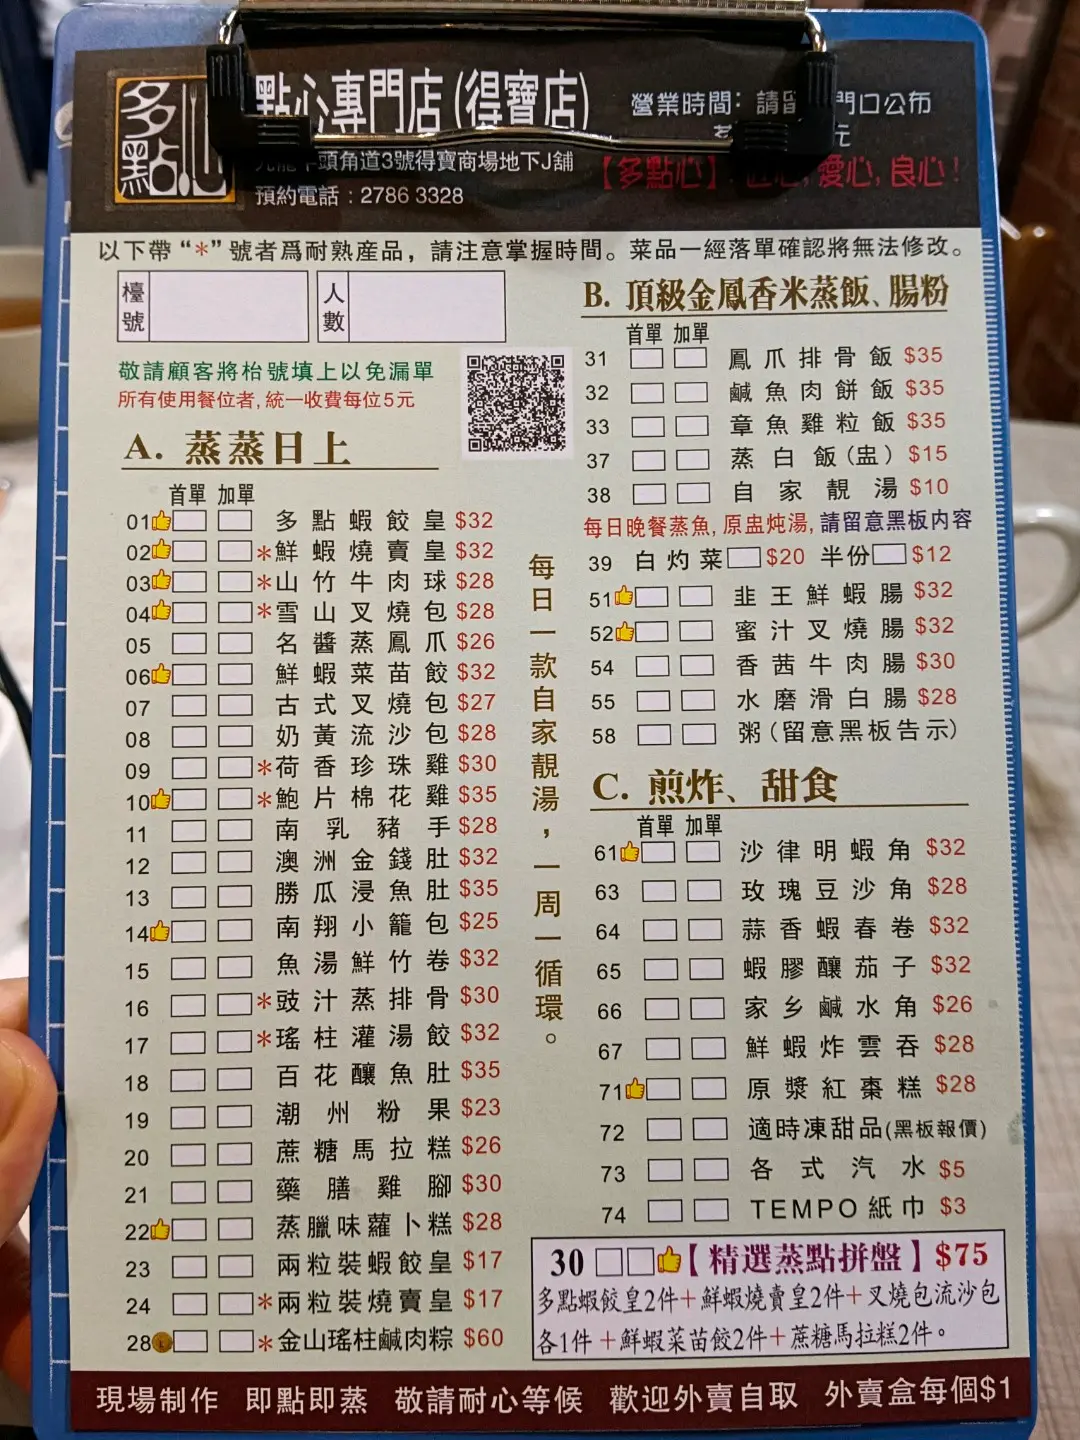 多點心
點心專門店(得寶店)
營業時間：請留 門口公布
元
頭角道3號得寶商場地下J舖
【多點心】 心,愛心,良心!
預約電話：2786 3328
以下帶“*”號者爲耐熟產品，請注意掌握時間。菜品一經落單確認將無法修改。
檯號
人數
敬請顧客將枱號填上以免漏單
所有使用餐位者,統一收費每位5元
A. 蒸蒸日上
首單 加單
01 多點蝦餃皇 $32
02 *鮮蝦燒賣皇 $32
03 *山竹牛肉球 $28
04 *雪山叉燒包 $28
05 名醬蒸鳳爪 $26
06 鮮蝦菜苗餃 $32
07 古式叉燒包 $27
08 奶黃流沙包 $28
09 *荷香珍珠雞 $30
10 *鮑片棉花雞 $35
11 南乳豬手 $28
12 澳洲金錢肚 $32
13 勝瓜浸魚肚 $35
14 南翔小籠包 $25
15 魚湯鮮竹卷 $32
16 *豉汁蒸排骨 $30
17 *瑤柱灌湯餃 $32
18 百花釀魚肚 $35
19 潮州粉果 $23
20 蔗糖馬拉糕 $26
21 藥膳雞腳 $30
22 蒸臘味蘿卜糕 $28
23 兩粒裝蝦餃皇 $17
24 *兩粒裝燒賣皇 $17
28 *金山瑤柱鹹肉粽 $60
每日一款自家靚湯，一周一循環。
B. 頂級金鳳香米蒸飯、腸粉
首單 加單
31 鳳爪排骨飯 $35
32 鹹魚肉餅飯 $35
33 章魚雞粒飯 $35
37 蒸白飯(盅) $15
38 自家靚湯 $10
每日晚餐蒸魚,原盅炖湯,請留意黑板内容
39 白灼菜 $20 半份 $12
51 韭王鮮蝦腸 $32
52 蜜汁叉燒腸 $32
54 香茜牛肉腸 $30
55 水磨滑白腸 $28
58 粥(留意黑板告示)
C. 煎炸、甜食
首單 加單
61 沙律明蝦角 $32
63 玫瑰豆沙角 $28
64 蒜香蝦春卷 $32
65 蝦膠釀茄子 $32
66 家乡鹹水角 $26
67 鮮蝦炸雲吞 $28
71 原漿紅棗糕 $28
72 適時凍甜品(黑板報價)
73 各式汽水 $5
74 TEMPO紙巾 $3
30 【精選蒸點拼盤】$75
多點蝦餃皇2件+鮮蝦燒賣皇2件+叉燒包流沙包
各1件+鮮蝦菜苗餃2件+蔗糖馬拉糕2件。
現場制作 即點即蒸 敬請耐心等候 歡迎外賣自取 外賣盒每個$1